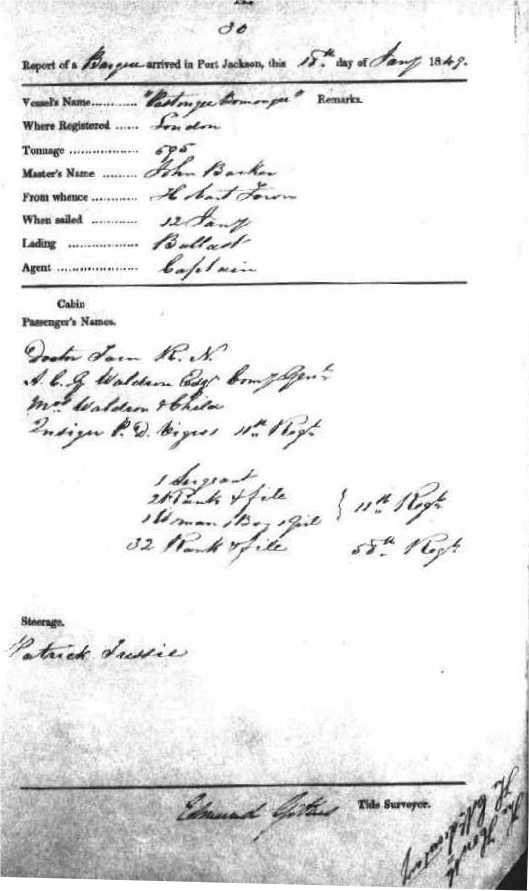 30
Report of a Barque arrived in Port Jackson, this 18th day of Jany 1849.
Vessel's Name........... "Pestongee Bomongee" Remarks.
Where Registered ...... London
Tonnage .................. 595
Master's Name ......... John Barker
From whence ......... Hobart Town
When sailed ............ 12 Jany
Lading .................. Ballast
Agent ..................... Captain
Cabin
Passenger's Names.
Doctor R. N.
A. C. G Waldron Esqr
Mrs Waldron & Child
Ensign P. D. Vigors 11th Regt
1 Sergeant
Rank & file
1 Woman 1 Boy 1 Girl } 11th Regt
32 Rank & file 58th Regt
Steerage.
Patrick
Edmund Tide Surveyor.